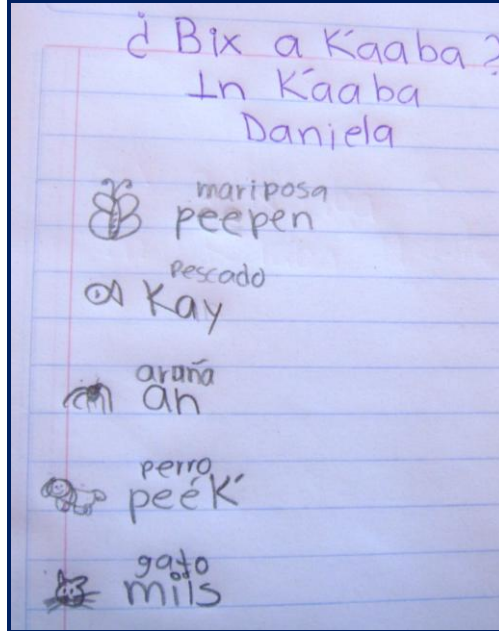 ¿ Bix a Káaba ?
In Káaba
Daniela
mariposa
peepen
pescado
Kay
araña
an
perro
peéK'
gato
miis